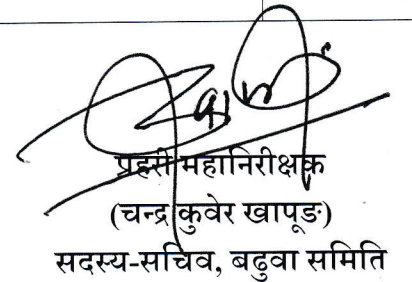 प्रहरी महानिरीक्षक
(चन्द्र कुवेर खापूङ)
सदस्य-सचिव, बढुवा समिति